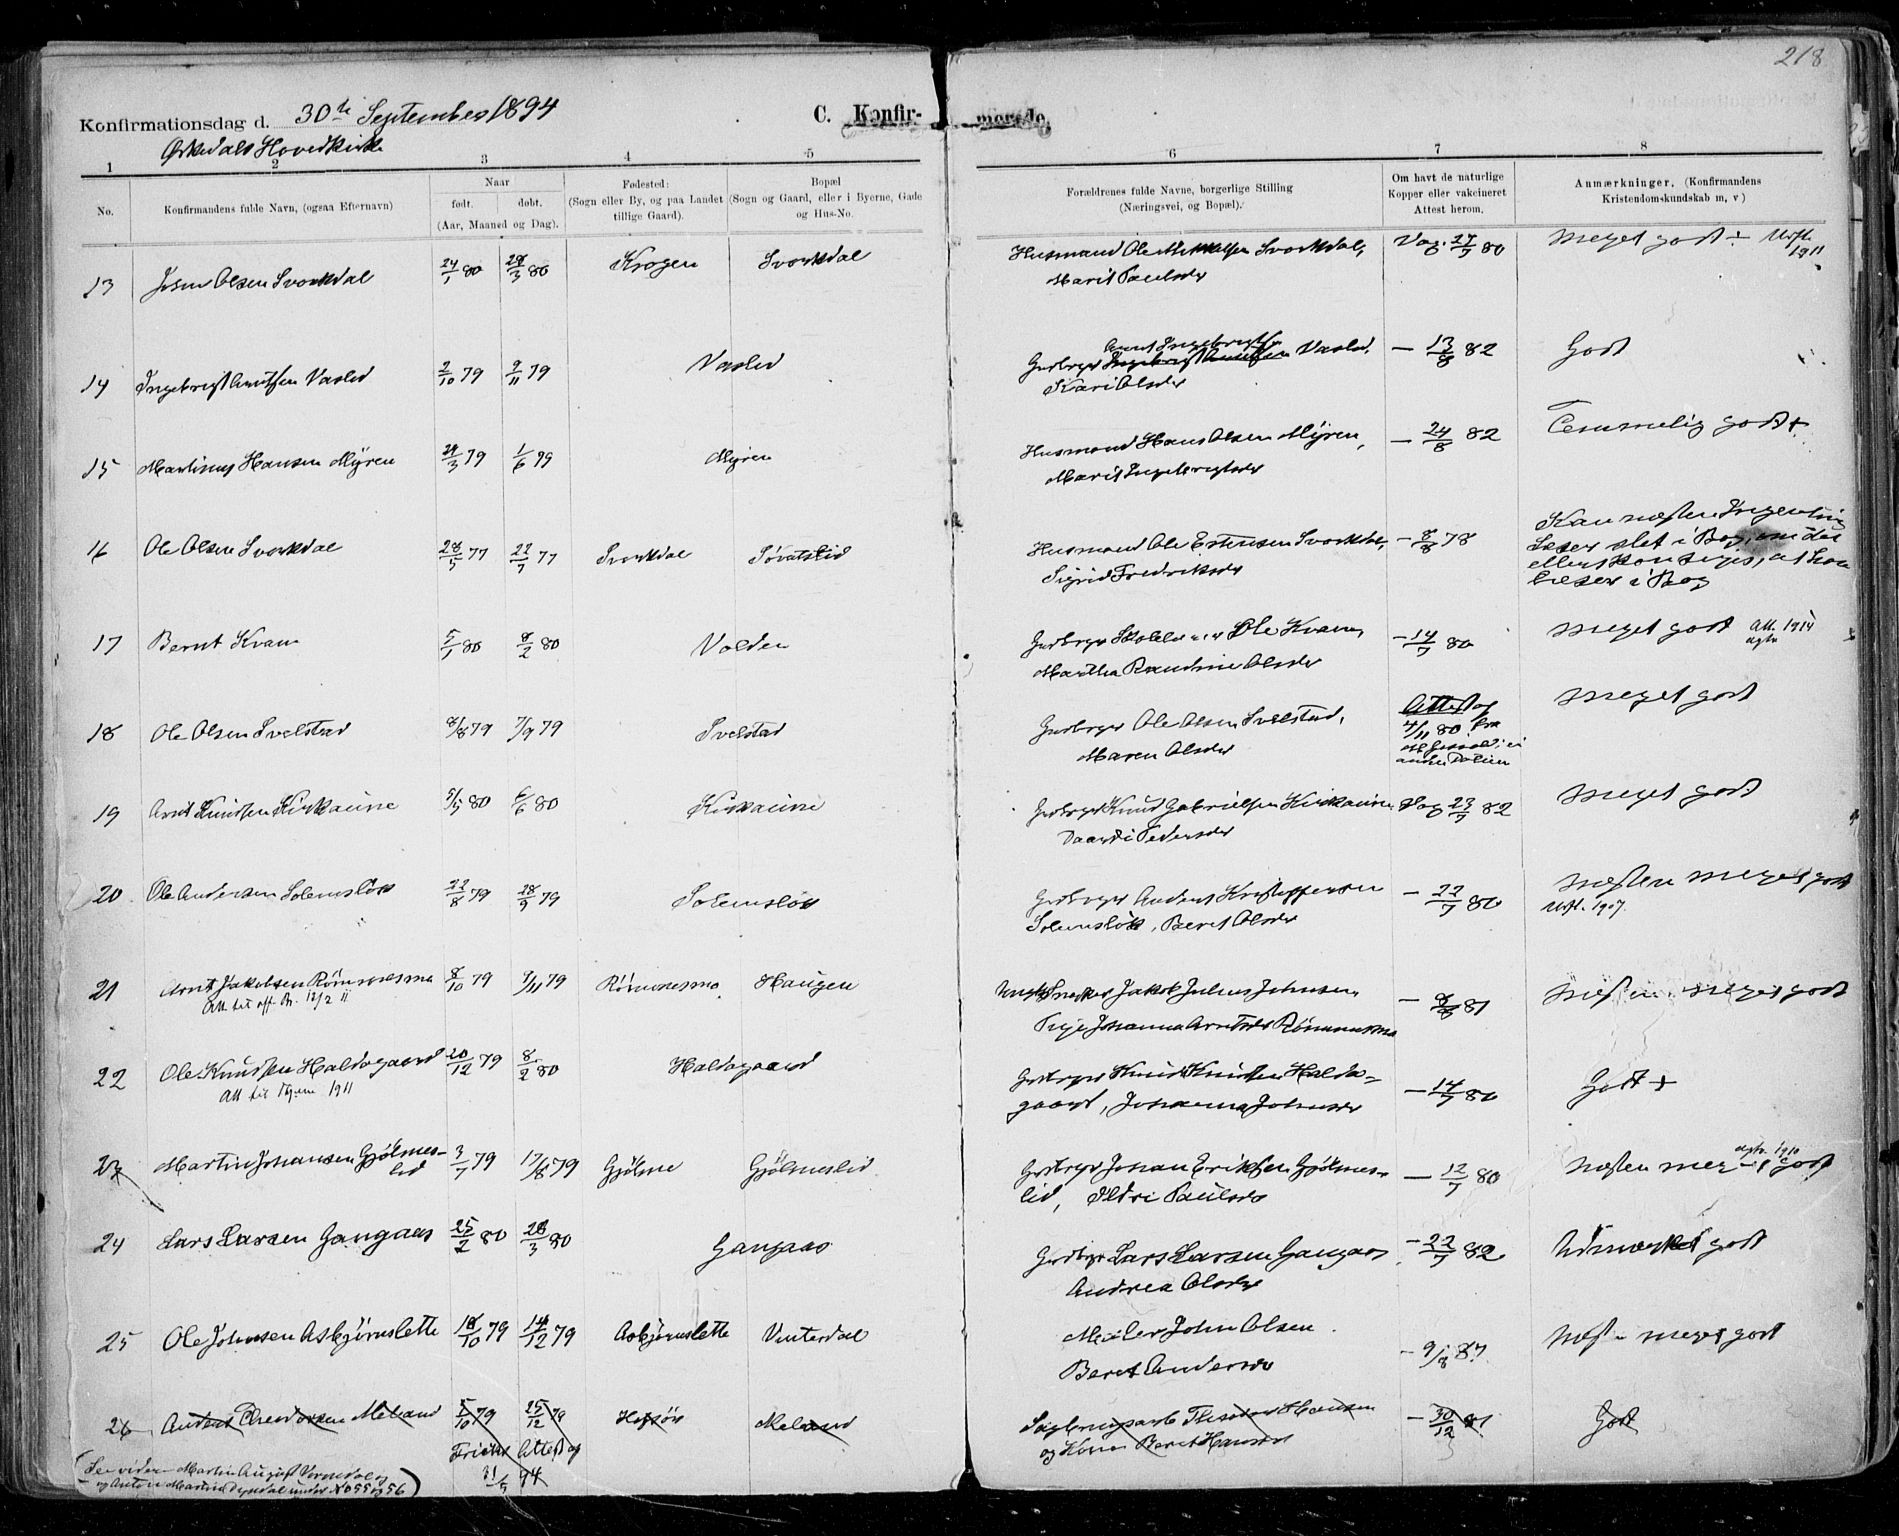 218
Konfirmationsdag d. 30te September 1894
C. Konfir-merede.
Ørkedals Hovedkirke
1 2 3 4 5 6 7 8
No.
Konfirmandens fulde Navn, (ogsaa Efternavn)
Naar
født. døbt.
(Aar, Maaned og Dag).
Fødested:
(Sogn eller By, og paa Landet
tillige Gaard).
Bopæl
(Sogn og Gaard, eller i Byerne, Gade
og Hus-No.
Forældrenes fulde Navne, borgerlige Stilling
(Næringsvei, og Bopæl).
Om havt de naturlige
Kopper eller vakcineret
Attest herom.
Anmærkninger. (Konfirmandens
Kristendomskundskab m, v)
13 Olsen Svorkdal 24/1 80 28/3 80 Krogen Svorkdal Husmand Svorkdal, Vac. 27/7 80 Meget godt ÷ Utfl. 1911
Marit Paulsdr
14 Ingebrigt Arntsen Vaslid 2/10 79 9/11 79 Vaslid Arnt Ingebrigtsen
Gaardbruger Ingebrigt Arntsen Vaslid, — 13/8 82 Godt
Kari Olsdr
15 Martinus Hansen Myren 24/3 79 1/6 79 Myren Husmand Hans Olsen Myren, — 24/8 82 Temmelig godt +
Marit Ingebrigtsdr
16 Ole Olsen Svorkdal 28/5 77 22/7 77 Svorkdal Husmand Ole Estensen Svorkdal, — 8/8 78 Kan næsten Ingenting
Sigrid Fredriksdr
Læser slet i Bog, om det
ellers kan siges, at han
læser i Bog
17 Bernt Kvam 5/1 80 8/2 80 Volden Gaardbruger Ole Kvam, — 14/7 80 Meget godt Att. 1914
Martha Randine Olsdr
18 Ole Olsen Svelstad 8/8 79 7/9 79 Svelstad Gaardbruger Ole Olsen Svelstad, Attest af
4/11 80 fra
Meget godt
Maren Olsdr
19 Arnt Knudsen Kirkaune 5/5 80 6/6 80 Kirkaune Gaardbruger Knud Gabrielsen Kirkaune Vac 23/7 82 Meget godt
Pedersdr
20 Ole Andersen Solemsløs 22/8 79 28/9 79 Solemsløs Gaardbruger Anders Kristoffersen — 22/7 80 Næsten meget godt
Beret Olsdr
Utfl. 1907.
21 Arnt Jakobsen Rømmesmo 8/10 79 9/11 79 Rømmesmo Haugen Jakob Julius Johnsen, — 8/8 81 Næsten meget godt
Johanna Arntsdr Rømmesmo
22 Ole Knudsen Haldogaard 20/12 79 8/2 80 Haldogaard Gaardbruger Knud Knudsen Haldo- — 14/7 80 Godt +
Att til 1911
gaard, Johanna Johnsdr
23 Martin Johansen Gjølmes- 3/7 79 17/8 79 Gjølme Gjølmeslid Gaardbruger Johan Eriksen Gjølmes- — 12/7 80 Næsten meget godt 1910
lid
lid, Paulsdr
24 Lars Larsen Gangaas 25/2 80 28/3 80 Gangaas Gaardbruger Lars Larsen Gangaas — 22/7 82 Udmærket godt
Andrea Olsdr
25 Ole Johnsen Asbjørnslette 18/10 79 14/12 79 Asbjørnslette Vinterdal John Olsen — 9/8 87 Næsten meget godt
Beret Andersdr
26 Meland 5/10 79 25/12 79 Meland Theodor Hansen — 30/12 81 Godt
og Kone Beret
Attest af
31/5 94
(Se videre Martin August
under No 55 og 56)